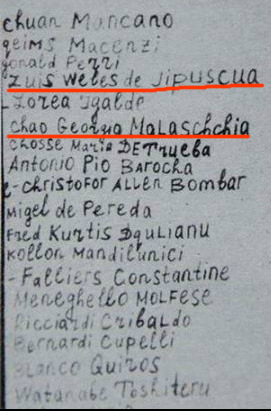 chuan Mancano
geims Macenzi
Jonald Perri
Luis Weles de Jipuscua
-Lorea Igalde
Chao Georgio Malaschchia
Chosse Maria DETrueba
Antonio Pio Barocha
-christofor Allen Bombar
Migel de Pereda
Fred Kurtis Dgulianu
Kollon Mandilunici
-Falliers Constantine
Meneghello Molfese
Ricciardi Cribaldo
Bernardi Cupelli
Blanco Quiros
Watanabe Toshiteru